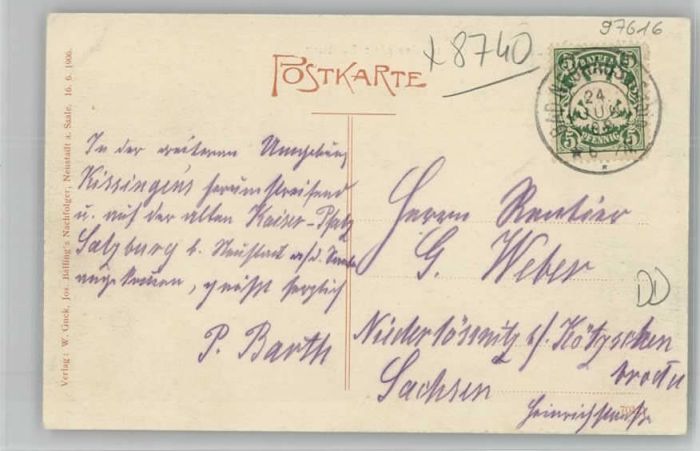 97616
x 8740
POSTKARTE
BAYERN
5 5
PFENNIG
24
In der weiteren Umgebung
Kissingens herumstreifend
u. auf der alten Kaiser-Pfalz
Salzburg b. Neustadt a/d. Saale
angekommen, grüßt herzlich
P. Barth
Herrn Rentier
G. Weber
Niederlössnitz b/ Kötzschen
broda
Sachsen
Heinrichstraße
DD
Verlag: W. Guck, Jos. Bälling's Nachfolger, Neustadt a. Saale. 16. 6. 1906.